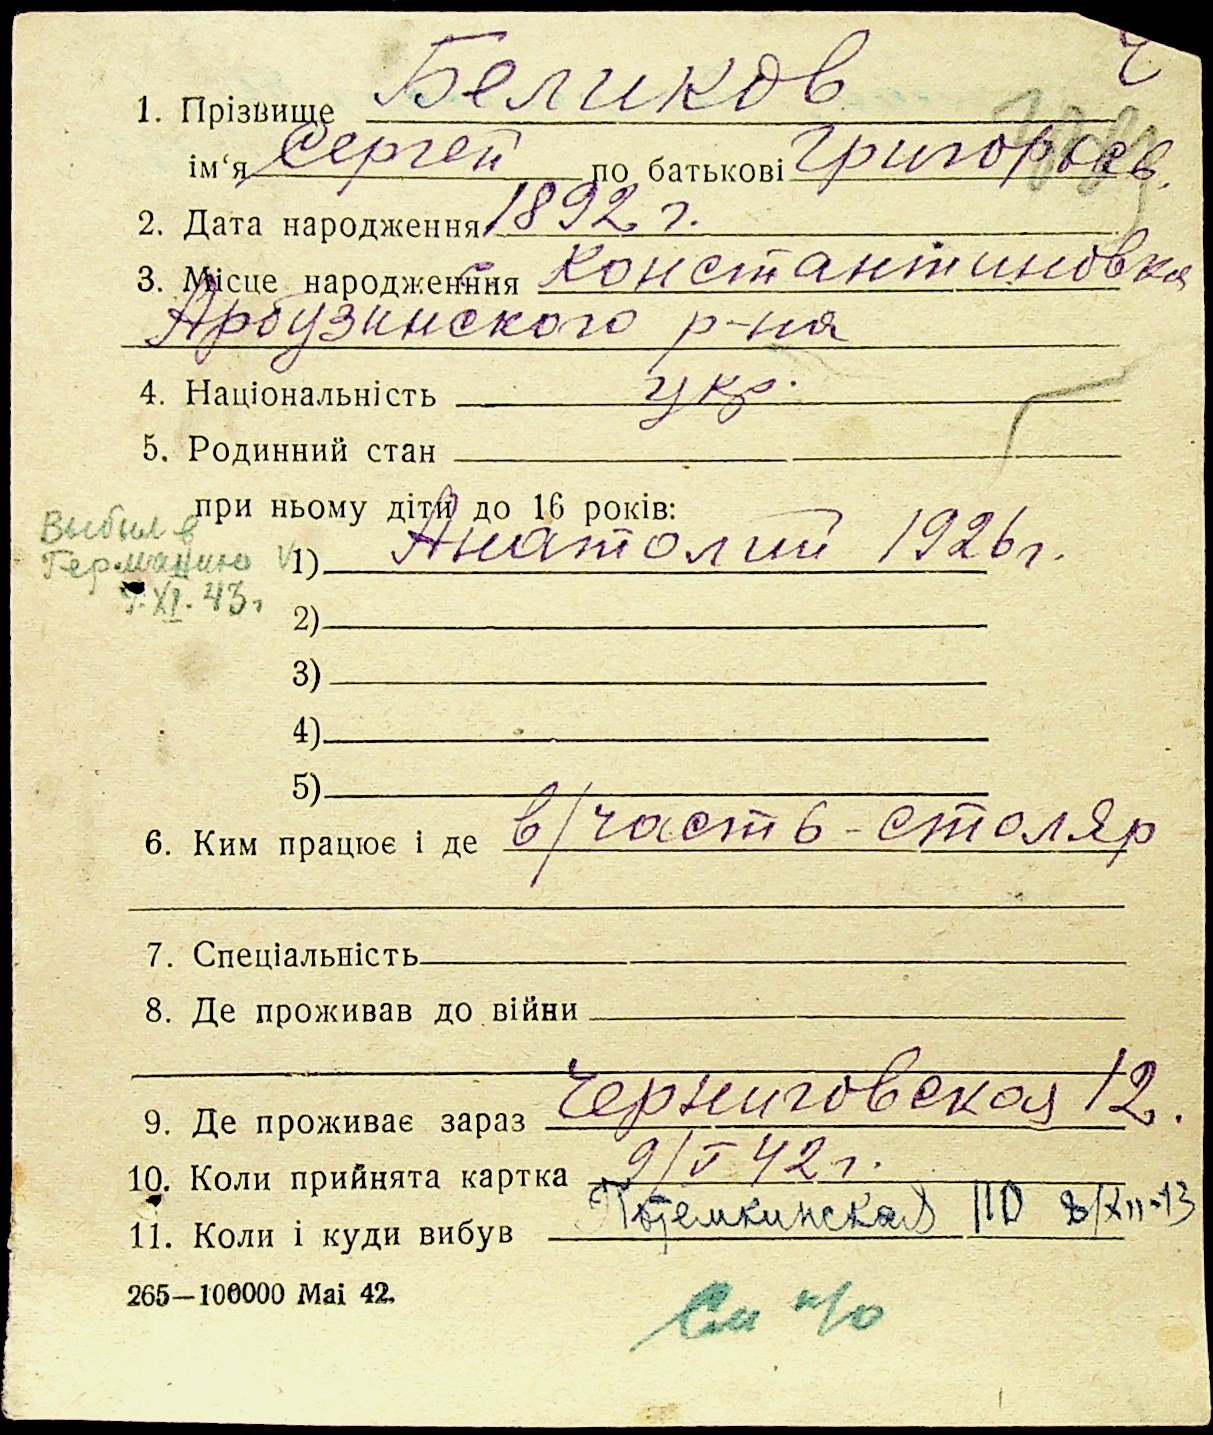 1. Прізвище Беликов
ім‘я Сергей по батькові Григорьев.
2. Дата народження 1892 г.
3. Місце народження с. Константиновка
Арбузинского р-на
4. Національність укр.
5. Родинний стан
при ньому діти до 16 років:
Выбыл в
Германию
XI. 43 г
1) Анатолий 1926 г.
2)
3)
4)
5)
6. Ким працює і де в/часть - столяр
7. Спеціальність
8. Де проживав до війни
9. Де проживає зараз Черниговская 12.
10. Коли прийнята картка 9/V 42 г.
11. Коли і куди вибув Потемкинская 8/XII-43
265—100000 Mai 42.
См н/о